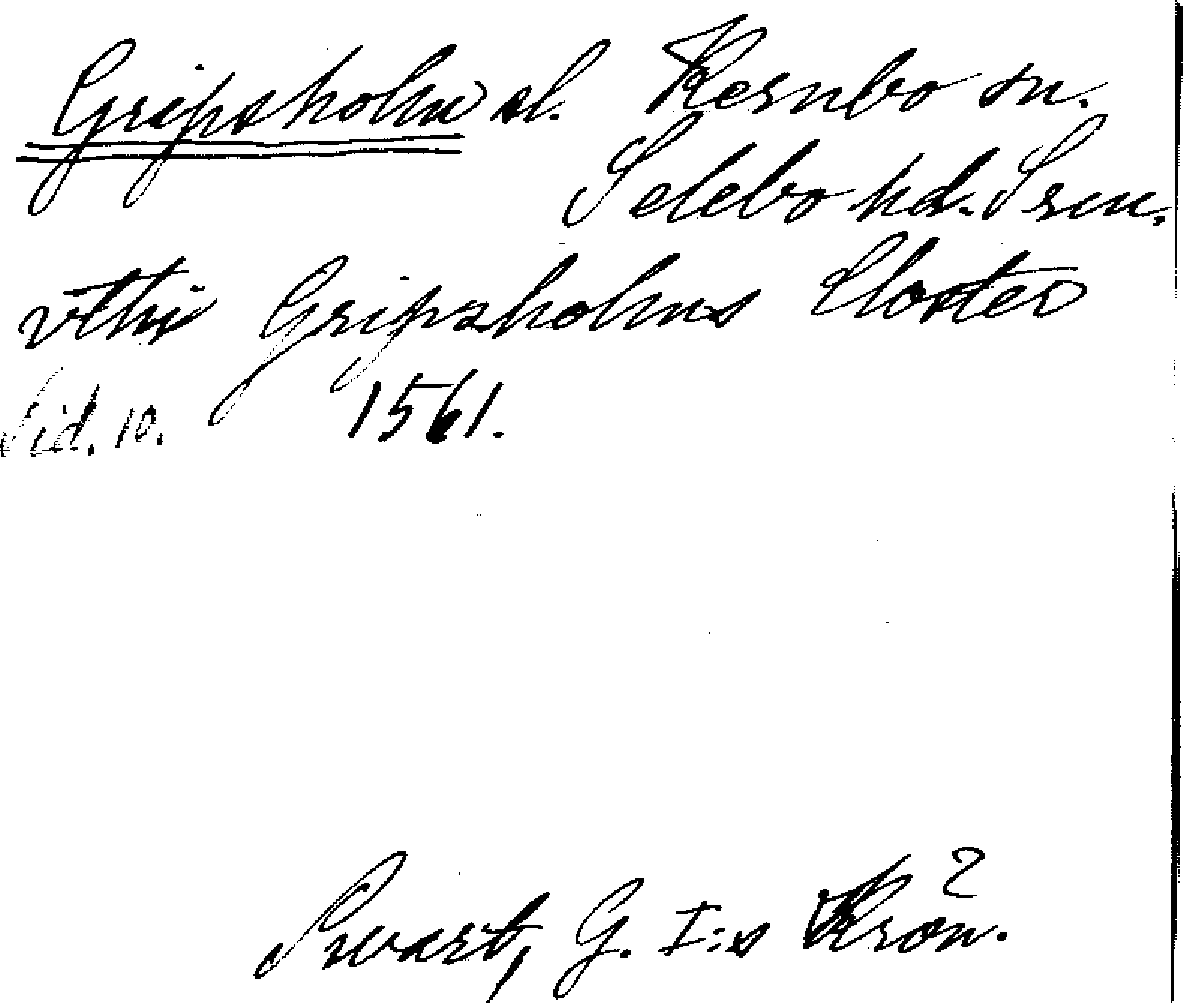 Gripsholm sl. Kernbo sn.
Selebo hd. Srm.
vthi Gripzholms Closter
Sid. 10. 1561.
Swart, G. I:s Krön.